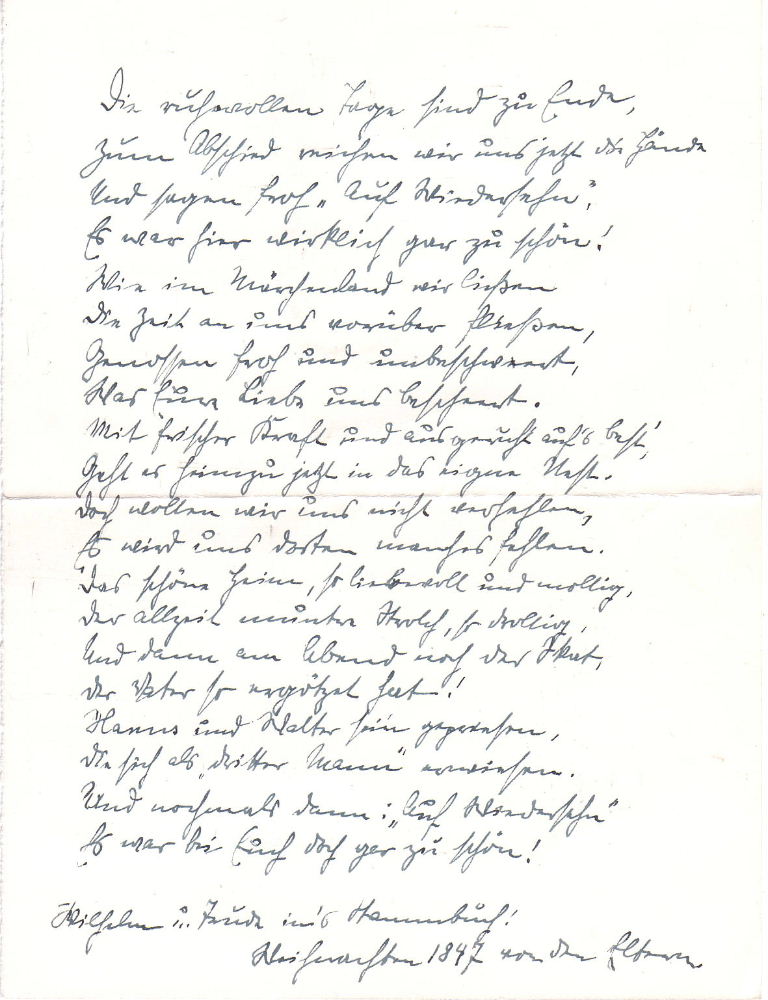 Die ruhevollen Tage sind zu Ende,
Zum Abschied reichen wir uns jetzt die Hände
Und sagen froh „Auf Wiedersehn",
Es war hier wirklich gar zu schön!
Wie im Märchenland wir ließen
Die Zeit an uns vorüber fließen,
Genossen froh und unbeschwert,
Was Eure Liebe uns beschert.
Mit frischer Kraft und ausgeruht auf's best',
Geht es heimzu jetzt in das eigne Nest.
Doch wollen wir uns nicht verhehlen,
Es wird uns dorten manches fehlen.
Das schöne Heim, so liebevoll und mollig,
der allzeit muntre Strolch, so drollig,
Und dann am Abend noch der Skat,
der Vater so ergötzet hat!
Hanns und Walter sei'n gepriesen,
die sich als „dritter Mann" erwiesen.
Und nochmals dann: „Auf Wiedersehn"
Es war bei Euch doch gar zu schön!
Wilhelm u. Trude in's Stammbuch!
Weihnachten 1947 von den Eltern